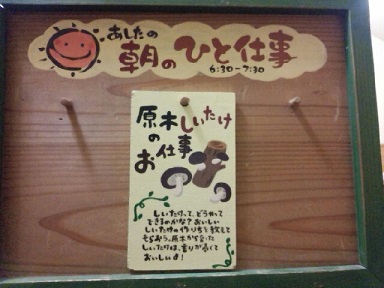 あしたの
朝のひと仕事
6:30-7:30
原木しいたけ
の
お仕事
しいたけって、どうやって
できるのかな?おいしい
しいたけの作り方を教えて
もらおう。原木から育った
しいたけは、香りが高くて
おいしいよ!